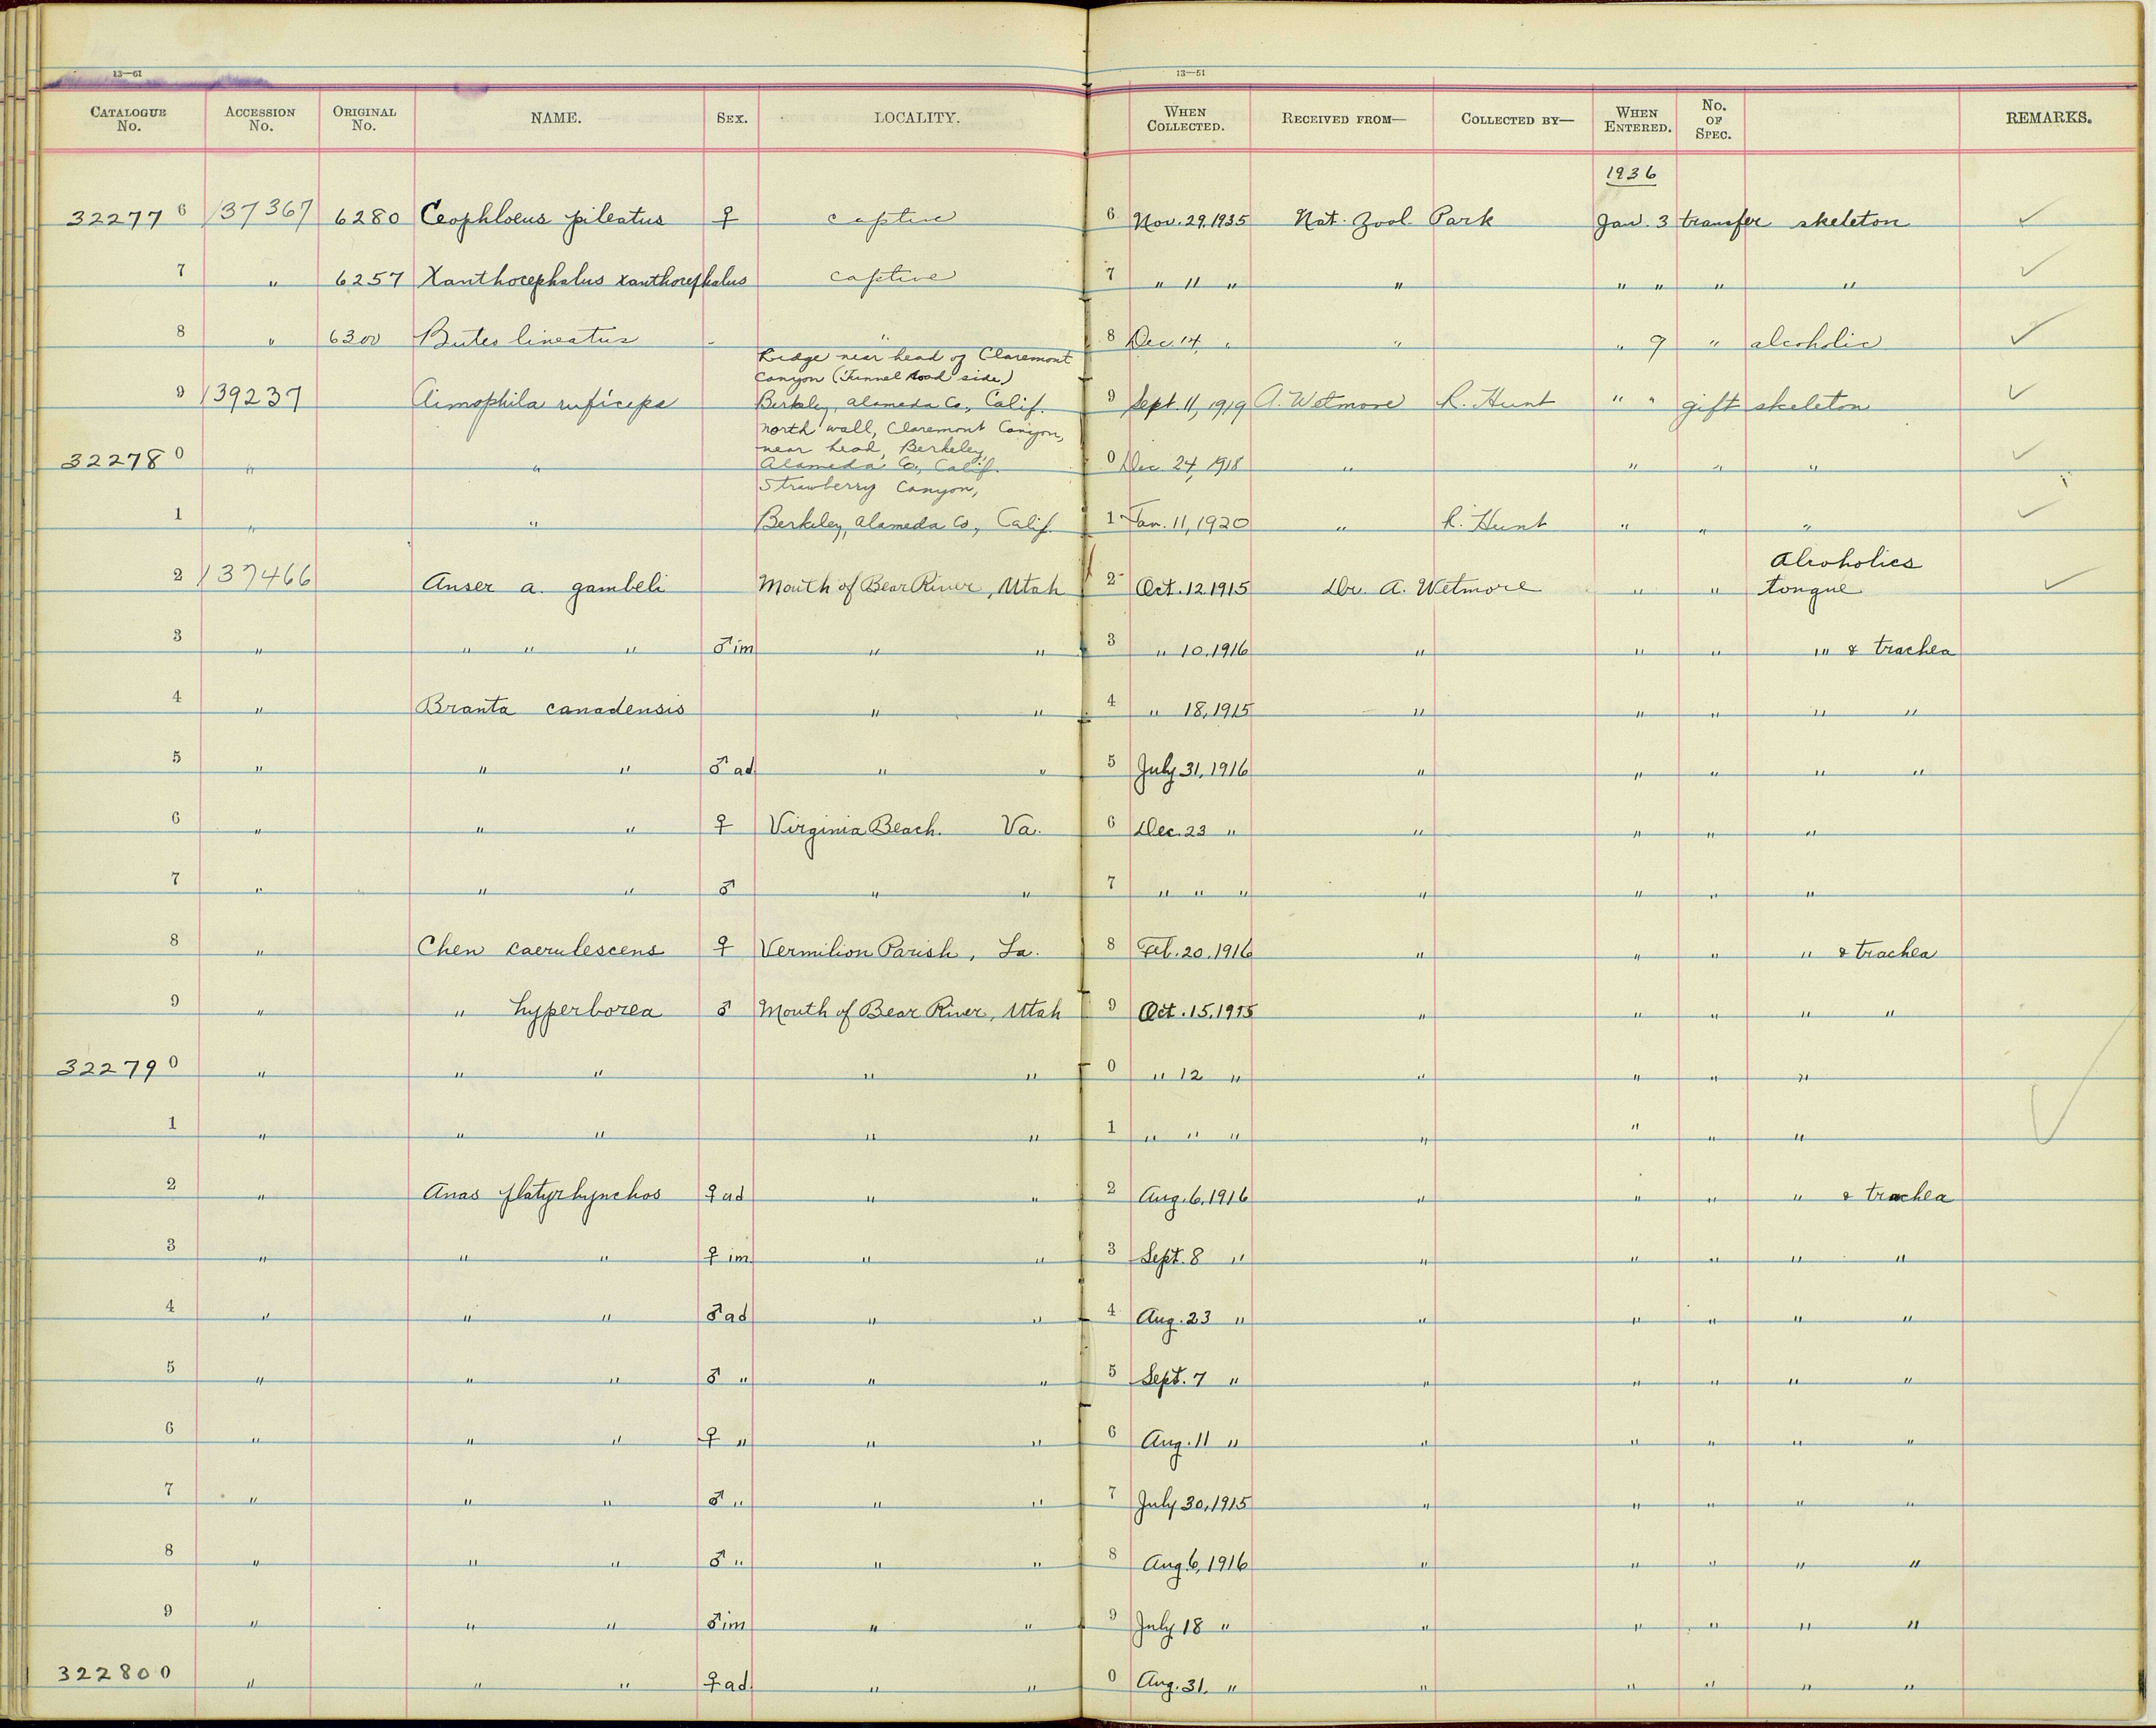 13—61 13—51
CATALOGUE No. ACCESSION No. ORIGINAL No. NAME. SEX. LOCALITY. WHEN COLLECTED. RECEIVED FROM— COLLECTED BY— WHEN ENTERED. No. OF SPEC. REMARKS.
1936
322776 137367 6280 Ceophloeus pileatus ♀ captive 6 Nov. 29, 1935 Nat. Zool. Park Jan. 3 transfer skeleton ✓
7 " 6257 Xanthocephalus xanthocephalus captive 7 " 11 " " " " " " ✓
8 " 6300 Buteo lineatus - " 8 Dec. 14, " " " 9 " alcoholic ✓
Ridge near head of Claremont
Canyon (Tunnel Road side)
9 139237 Aimophila ruficeps Berkeley, Alameda Co., Calif. 9 Sept. 11, 1919 A. Wetmore R. Hunt " " gift skeleton ✓
North wall, Claremont Canyon,
near head, Berkeley,
322780 " " Alameda Co., Calif. 0 Dec. 24, 1918 " " " " ✓
Strawberry Canyon,
1 " " Berkeley, Alameda Co., Calif. 1 Jan. 11, 1920 " R. Hunt " " " ✓
Alcoholics
2 137466 Anser a. gambeli Mouth of Bear River, Utah 2 Oct. 12, 1915 Dr. A. Wetmore " " tongue ✓
3 " " " " ♂ im " " 3 " 10, 1916 " " " " & trachea
4 " Branta canadensis " " 4 " 18, 1915 " " " " "
5 " " " ♂ ad " " 5 July 31, 1916 " " " " "
6 " " " ♀ Virginia Beach. Va. 6 Dec. 23 " " " " "
7 " " " ♂ " " 7 " " " " " " "
8 " Chen caerulescens ♀ Vermilion Parish, La. 8 Feb. 20, 1916 " " " " & trachea
9 " " hyperborea ♂ Mouth of Bear River, Utah 9 Oct. 15, 1915 " " " " "
322790 " " " " " 0 " 12 " " " " "
1 " " " " " 1 " " " " " " " ✓
2 " Anas platyrhynchos ♀ ad " " 2 Aug. 6, 1916 " " " " & trachea
3 " " " ♀ im " " 3 Sept. 8 " " " " " "
4 " " " ♂ ad " " 4 Aug. 23 " " " " " "
5 " " " ♂ " " " 5 Sept. 7 " " " " " "
6 " " " ♀ " " " 6 Aug. 11 " " " " " "
7 " " " ♂ " " " 7 July 30, 1915 " " " " "
8 " " " ♂ " " " 8 Aug. 6, 1916 " " " " "
9 " " " ♂ im " " 9 July 18 " " " " " "
322800 " " " ♀ ad. " " 0 Aug. 31. " " " " " "